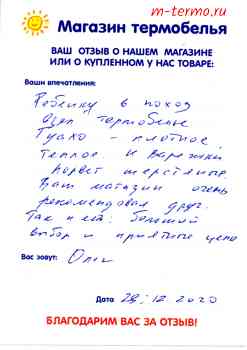 m-termo.ru
Магазин термобелья
ВАШ ОТЗЫВ О НАШЕМ МАГАЗИНЕ
ИЛИ О КУПЛЕННОМ У НАС ТОВАРЕ:
Ваши впечатления:
Ребенку в поход
взял термобелье
Гуахо - плотное,
теплое. И варежки
Норвег шерстяные.
Ваш магазин очень
рекомендовал друг.
Так и есть: большой
выбор и приятные цены
Вас зовут:
Дата 28.12.2020
БЛАГОДАРИМ ВАС ЗА ОТЗЫВ!